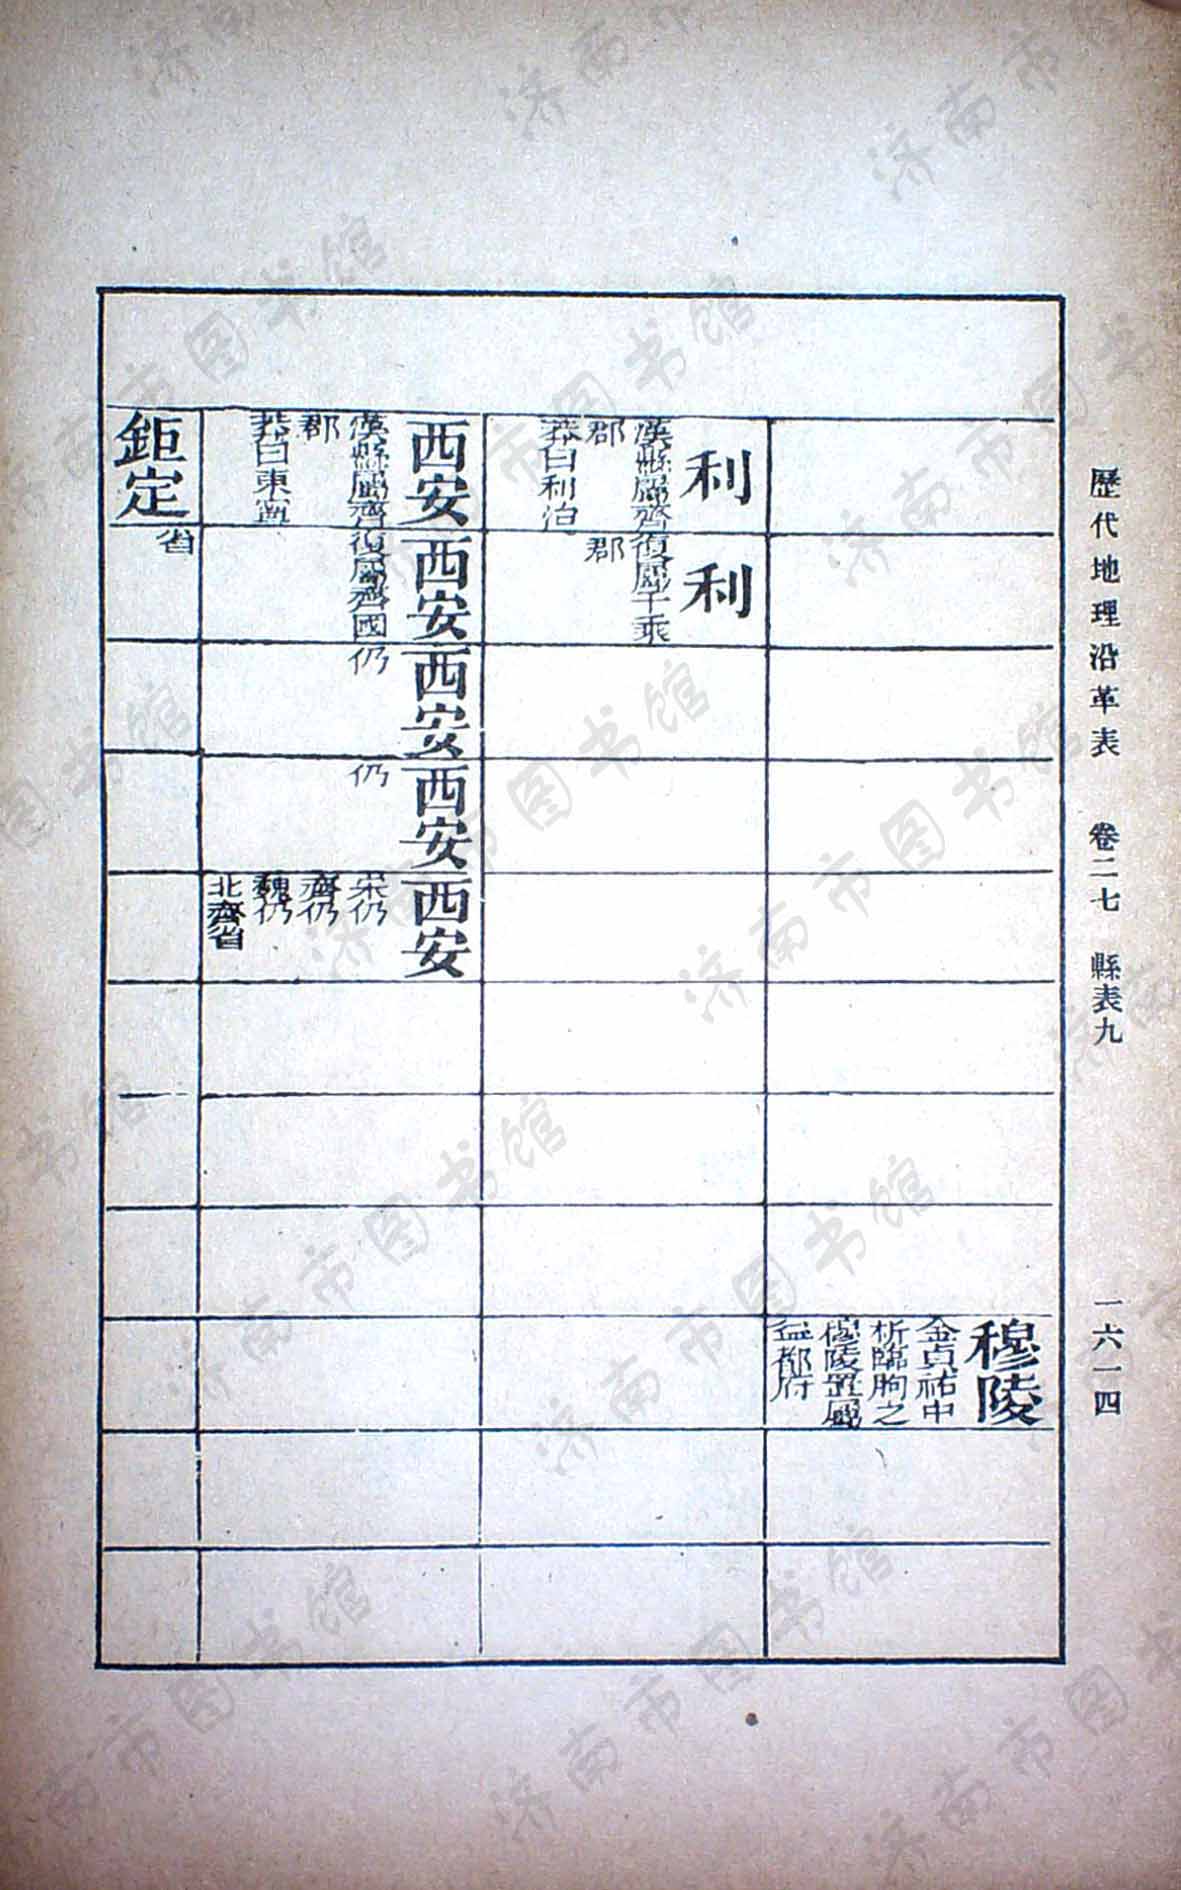 歷代地理沿革表 卷二七 縣表九 一六一四
穆陵
金貞祐中
析臨朐之
穆陵置屬
益都府
利
漢縣屬齊
郡
莽曰利治
利
復屬千乘
郡
西安
漢縣屬齊
郡
莽曰東寧
西安
復屬齊國
西安
仍
西安
仍
西安
宋仍
齊仍
魏仍
北齊省
鉅定
省
济南市图书馆